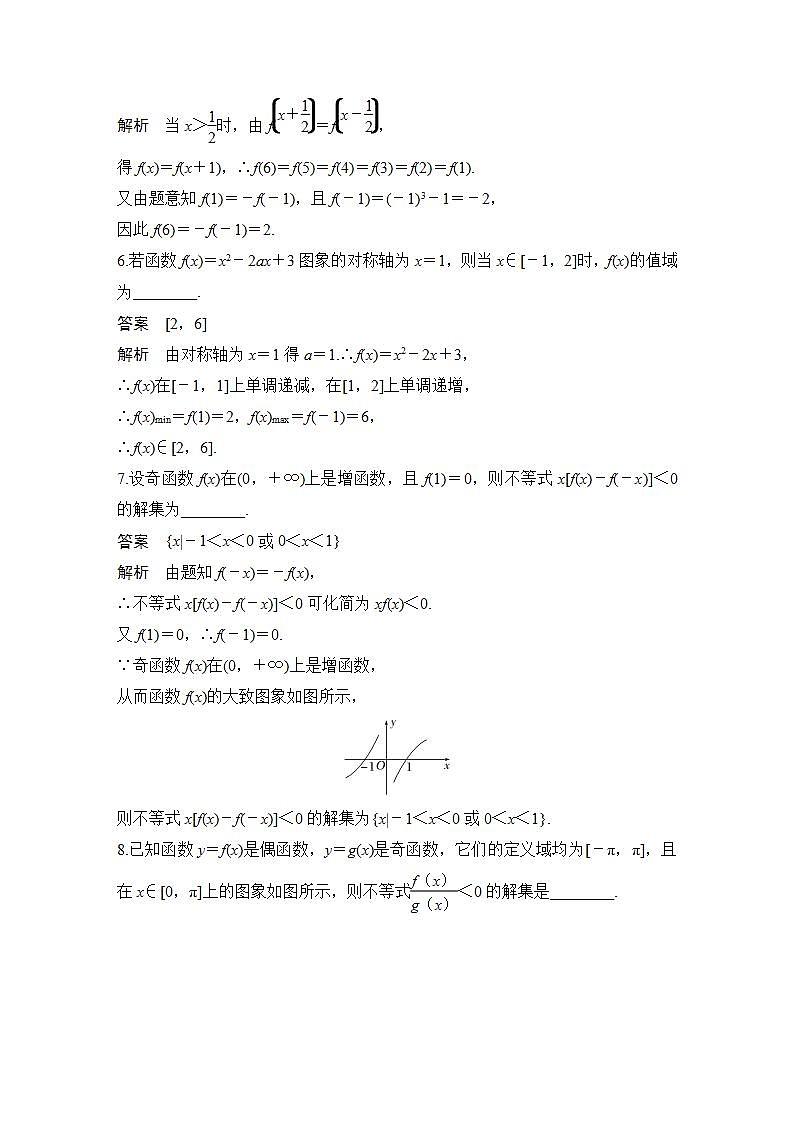 解析　当 x＞1/2时，由 f(x＋1/2)＝f(x－1/2)，
得 f(x)＝f(x＋1)，∴f(6)＝f(5)＝f(4)＝f(3)＝f(2)＝f(1).
又由题意知 f(1)＝－f(－1)，且 f(－1)＝(－1)³－1＝－2，
因此 f(6)＝－f(－1)＝2.
6.若函数 f(x)＝x²－2ax＋3 图象的对称轴为 x＝1，则当 x∈[－1，2]时，f(x)的值域
为________.
答案　[2，6]
解析　由对称轴为 x＝1 得 a＝1.∴f(x)＝x²－2x＋3，
∴f(x)在[－1，1]上单调递减，在[1，2]上单调递增，
∴f(x)min＝f(1)＝2，f(x)max＝f(－1)＝6，
∴f(x)∈[2，6].
7.设奇函数 f(x)在(0，＋∞)上是增函数，且 f(1)＝0，则不等式 x[f(x)－f(－x)]＜0
的解集为________.
答案　{x|－1＜x＜0 或 0＜x＜1}
解析　由题知 f(－x)＝－f(x)，
∴不等式 x[f(x)－f(－x)]＜0 可化简为 xf(x)＜0.
又 f(1)＝0，∴f(－1)＝0.
∵奇函数 f(x)在(0，＋∞)上是增函数，
从而函数 f(x)的大致图象如图所示，
y
－1 O 1 x
则不等式 x[f(x)－f(－x)]＜0 的解集为{x|－1＜x＜0 或 0＜x＜1}.
8.已知函数 y＝f(x)是偶函数，y＝g(x)是奇函数，它们的定义域均为[－π，π]，且
在 x∈[0，π]上的图象如图所示，则不等式f（x）/g（x）＜0 的解集是________.